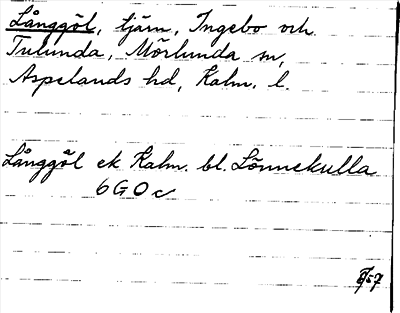 Långgöl, tjärn, Ingebo och
Tulunda, Mörlunda sn,
Aspelands hd, Kalm. l.
Långgöl ek Kalm. bl. Lönnekulla
6G0c